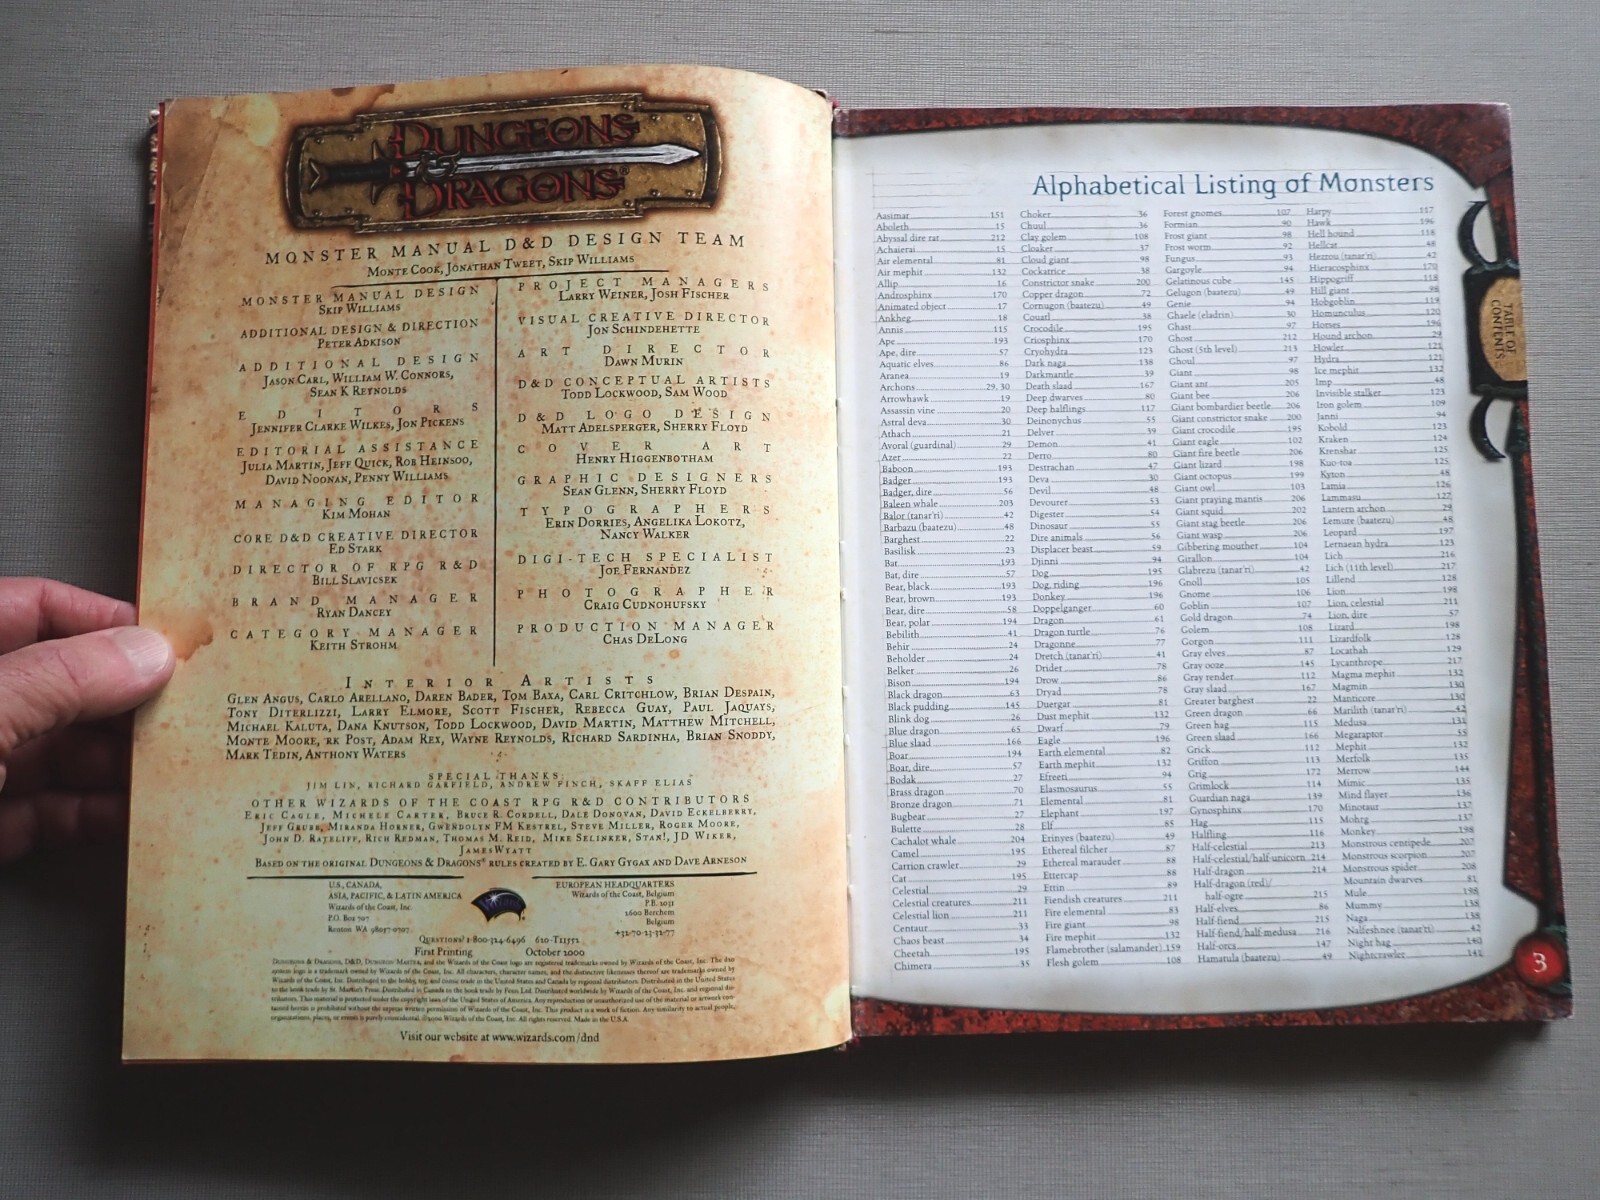 DUNGEONS
DRAGONS®
MONSTER MANUAL D&D DESIGN TEAM
MONTE COOK, JONATHAN TWEET, SKIP WILLIAMS
MONSTER MANUAL DESIGN
SKIP WILLIAMS
ADDITIONAL DESIGN & DIRECTION
PETER ADKISON
ADDITIONAL DESIGN
JASON CARL, WILLIAM W. CONNORS,
SEAN K REYNOLDS
EDITORS
JENNIFER CLARKE WILKES, JON PICKENS
EDITORIAL ASSISTANCE
JULIA MARTIN, JEFF QUICK, ROB HEINSOO,
DAVID NOONAN, PENNY WILLIAMS
MANAGING EDITOR
KIM MOHAN
CORE D&D CREATIVE DIRECTOR
ED STARK
DIRECTOR OF RPG R&D
BILL SLAVICSEK
BRAND MANAGER
RYAN DANCEY
CATEGORY MANAGER
KEITH STROHM
PROJECT MANAGERS
LARRY WEINER, JOSH FISCHER
VISUAL CREATIVE DIRECTOR
JON SCHINDEHETTE
ART DIRECTOR
DAWN MURIN
D&D CONCEPTUAL ARTISTS
TODD LOCKWOOD, SAM WOOD
D&D LOGO DESIGN
MATT ADELSPERGER, SHERRY FLOYD
COVER ART
HENRY HIGGENBOTHAM
GRAPHIC DESIGNERS
SEAN GLENN, SHERRY FLOYD
TYPOGRAPHERS
ERIN DORRIES, ANGELIKA LOKOTZ,
NANCY WALKER
DIGI-TECH SPECIALIST
JOE FERNANDEZ
PHOTOGRAPHER
CRAIG CUDNOHUFSKY
PRODUCTION MANAGER
CHAS DELONG
INTERIOR ARTISTS
GLEN ANGUS, CARLO ARELLANO, DAREN BADER, TOM BAXA, CARL CRITCHLOW, BRIAN DESPAIN,
TONY DITERLIZZI, LARRY ELMORE, SCOTT FISCHER, REBECCA GUAY, PAUL JAQUAYS,
MICHAEL KALUTA, DANA KNUTSON, TODD LOCKWOOD, DAVID MARTIN, MATTHEW MITCHELL,
MONTE MOORE, RK POST, ADAM REX, WAYNE REYNOLDS, RICHARD SARDINHA, BRIAN SNODDY,
MARK TEDIN, ANTHONY WATERS
SPECIAL THANKS:
JIM LIN, RICHARD GARFIELD, ANDREW FINCH, SKAFF ELIAS
OTHER WIZARDS OF THE COAST RPG R&D CONTRIBUTORS
ERIC CAGLE, MICHELE CARTER, BRUCE R. CORDELL, DALE DONOVAN, DAVID ECKELBERRY,
JEFF GRUBB, MIRANDA HORNER, GWENDOLYN FM KESTREL, STEVE MILLER, ROGER MOORE,
JOHN D. RATELIFF, RICH REDMAN, THOMAS M. REID, MIKE SELINKER, STAN!, JD WIKER,
JAMES WYATT
BASED ON THE ORIGINAL DUNGEONS & DRAGONS® RULES CREATED BY E. GARY GYGAX AND DAVE ARNESON
U.S., CANADA,
ASIA, PACIFIC, & LATIN AMERICA
Wizards of the Coast, Inc.
P.O. Box 707
Renton WA 98057-0707
Wizards
EUROPEAN HEADQUARTERS
Wizards of the Coast, Belgium
P.B. 2031
2600 Berchem
Belgium
+32-70-23-32-77
QUESTIONS? 1-800-324-6496 620-T11552
First Printing October 2000
DUNGEONS & DRAGONS, D&D, DUNGEON MASTER, and the Wizards of the Coast logo are registered trademarks owned by Wizards of the Coast, Inc. The d20
system logo is a trademark owned by Wizards of the Coast, Inc. All characters, character names, and the distinctive likenesses thereof are trademarks owned by
Wizards of the Coast, Inc. Distributed to the hobby, toy, and comic trade in the United States and Canada by regional distributors. Distributed in the United States
to the book trade by St. Martin's Press. Distributed in Canada to the book trade by Fenn Ltd. Distributed worldwide by Wizards of the Coast, Inc. and regional dis-
tributors. This material is protected under the copyright laws of the United States of America. Any reproduction or unauthorized use of the material or artwork con-
tained herein is prohibited without the express written permission of Wizards of the Coast, Inc. This product is a work of fiction. Any similarity to actual people,
organizations, places, or events is purely coincidental. ©2000 Wizards of the Coast, Inc. All rights reserved. Made in the U.S.A.
Visit our website at www.wizards.com/dnd
Alphabetical Listing of Monsters
Aasimar 151
Aboleth 15
Abyssal dire rat 212
Achaierai 15
Air elemental 81
Air mephit 132
Allip 16
Androsphinx 170
Animated object 17
Ankheg 18
Annis 115
Ape 193
Ape, dire 57
Aquatic elves 86
Aranea 19
Archons 29, 30
Arrowhawk 19
Assassin vine 20
Astral deva 30
Athach 21
Avoral (guardinal) 29
Azer 22
Baboon 193
Badger 193
Badger, dire 56
Baleen whale 203
Balor (tanar'ri) 42
Barbazu (baatezu) 48
Barghest 22
Basilisk 23
Bat 193
Bat, dire 57
Bear, black 193
Bear, brown 193
Bear, dire 58
Bear, polar 194
Bebilith 41
Behir 24
Beholder 24
Belker 26
Bison 194
Black dragon 63
Black pudding 145
Blink dog 26
Blue dragon 65
Blue slaad 166
Boar 194
Boar, dire 57
Bodak 27
Brass dragon 70
Bronze dragon 71
Bugbear 27
Bulette 28
Cachalot whale 204
Camel 195
Carrion crawler 29
Cat 195
Celestial 29
Celestial creatures 211
Celestial lion 211
Centaur 33
Chaos beast 34
Cheetah 195
Chimera 35
Choker 36
Chuul 36
Clay golem 108
Cloaker 37
Cloud giant 98
Cockatrice 38
Constrictor snake 200
Copper dragon 72
Cornugon (baatezu) 49
Couatl 38
Crocodile 195
Criosphinx 170
Cryohydra 123
Dark naga 138
Darkmantle 39
Death slaad 167
Deep dwarves 80
Deep halflings 117
Deinonychus 55
Delver 39
Demon 41
Derro 80
Destrachan 47
Deva 30
Devil 48
Devourer 53
Digester 54
Dinosaur 55
Dire animals 56
Displacer beast 59
Djinni 94
Dog 195
Dog, riding 196
Donkey 196
Doppelganger 60
Dragon 61
Dragon turtle 76
Dragonne 77
Dretch (tanar'ri) 41
Drider 78
Drow 86
Dryad 78
Duergar 81
Dust mephit 132
Dwarf 79
Eagle 196
Earth elemental 82
Earth mephit 132
Efreeti 94
Elasmosaurus 55
Elemental 81
Elephant 197
Elf 85
Erinyes (baatezu) 49
Ethereal filcher 87
Ethereal marauder 88
Ettercap 88
Ettin 89
Fiendish creatures 211
Fire elemental 83
Fire giant 98
Fire mephit 132
Flamebrother (salamander) 159
Flesh golem 108
Forest gnomes 107
Formian 90
Frost giant 98
Frost worm 92
Fungus 93
Gargoyle 94
Gelatinous cube 145
Gelugon (baatezu) 49
Genie 94
Ghaele (eladrin) 30
Ghast 97
Ghost 212
Ghost (5th level) 213
Ghoul 97
Giant 98
Giant ant 205
Giant bee 206
Giant bombardier beetle 206
Giant constrictor snake 200
Giant crocodile 195
Giant eagle 102
Giant fire beetle 206
Giant lizard 198
Giant octopus 199
Giant owl 103
Giant praying mantis 206
Giant squid 202
Giant stag beetle 206
Giant wasp 206
Gibbering mouther 104
Girallon 104
Glabrezu (tanar'ri) 42
Gnoll 105
Gnome 106
Goblin 107
Gold dragon 74
Golem 108
Gorgon 111
Gray elves 87
Gray ooze 145
Gray render 112
Gray slaad 167
Greater barghest 22
Green dragon 66
Green hag 115
Green slaad 166
Grick 112
Griffon 113
Grig 172
Grimlock 114
Guardian naga 139
Gynosphinx 170
Hag 115
Halfling 116
Half-celestial 213
Half-celestial/half-unicorn 214
Half-dragon 214
Half-dragon (red)/
half-ogre 215
Half-elves 86
Half-fiend 215
Half-fiend/half-medusa 216
Half-orcs 147
Hamatula (baatezu) 49
Harpy 117
Hawk 196
Hell hound 118
Hellcat 48
Hezrou (tanar'ri) 42
Hieracosphinx 170
Hippogriff 118
Hill giant 98
Hobgoblin 119
Homunculus 120
Horses 196
Hound archon 29
Howler 121
Hydra 121
Ice mephit 132
Imp 48
Invisible stalker 123
Iron golem 109
Janni 94
Kobold 123
Kraken 124
Krenshar 125
Kuo-toa 125
Kyton 48
Lamia 126
Lammasu 127
Lantern archon 29
Lemure (baatezu) 48
Leopard 197
Lernaean hydra 123
Lich 216
Lich (11th level) 217
Lillend 128
Lion 198
Lion, celestial 211
Lion, dire 57
Lizard 198
Lizardfolk 128
Locathah 129
Lycanthrope 217
Magma mephit 132
Magmin 130
Manticore 130
Marilith (tanar'ri) 42
Medusa 131
Megaraptor 55
Mephit 132
Merfolk 135
Merrow 144
Mimic 135
Mind flayer 136
Minotaur 137
Mohrg 137
Monkey 198
Monstrous centipede 207
Monstrous scorpion 207
Monstrous spider 208
Mountain dwarves 81
Mule 198
Mummy 138
Naga 138
Nalfeshnee (tanar'ri) 42
Night hag 140
Nightcrawler 141
TABLE OF
CONTENTS
3